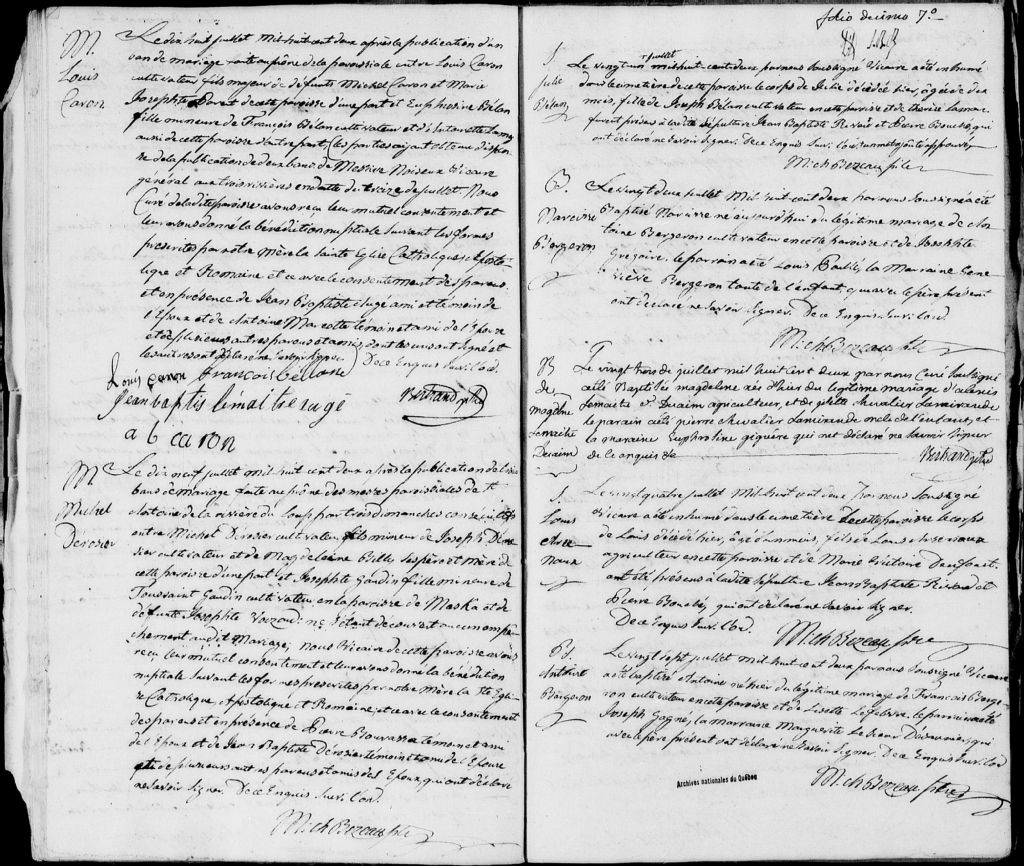 M.
Louis
Caron
Le dix huit juillet mil huit cent deux après la publication d'un
ban de mariage faite au prône de la paroissiale entre Louis Caron
cultivateur fils majeur de défunts Michel Caron et Marie
Josephte de cette paroisse d'une part et Euphrosine Bélan
fille mineure de François Bélan cultivateur et d'Antoinette
aussi de cette paroisse d'autre part; les parties ayant obtenu dispen
se de la publication de deux bans de Messire Noiseux Vicaire
général aux trois rivières en datte du treize de juillet Nous
Curé de ladite paroisse avons reçu leur mutuel consentement et
leur avons donné la bénédiction nuptiale suivant les formes
prescrites par notre Mère la Sainte Eglise Catholique Aposto-
lique et Romaine et ce avec le consentement des parens
et en présence de Jean Baptiste ami et témoin de
l'Epoux et de Antoine Marcotte témoin et ami de l'Epouse
et de plusieurs autres parens et amis dont les uns ont signé et
les autres ont déclaré ne savoir signer
De ce Enquis Suiv. l'ord.
Louis caron francois bellane
Jean baptis lemaitre augé
Bertrand ptre
a b caron
M
Michel
Derosier
Le dix neuf juillet mil huit cent deux après la publication de trois
bans de mariage faite au prône des messes paroissiales de St
Antoine de la rivière du Loup par trois dimanches consécutifs
entre Michel Derosier cultivateur fils mineur de Joseph Dero
sier cultivateur et de Magdeleine Bille ses père et mère de
cette paroisse d'une part et Josephte Gaudin fille mineure de
Toussaint Gaudin cultivateur en la paroisse de Maska et de
défunte Josephte ; ne s'étant découvert aucun empê-
chement audit Mariage; nous Vicaire de cette paroisse avons
reçu leur mutuel consentement et leur avons donné la bénédiction
nuptiale suivant les formes prescrites par notre Mère la Ste Egli
se Catholique, Apostolique et Romaine; et ce avec le consentement
des parens et en présence de Pierre Bourassa témoin et ami
de l'Epoux et de Jean Baptiste Derosier témoin et ami de l'Epouse
et de plusieurs autres parens et amis des Epoux, qui ont déclaré
ne savoir signer. De ce Enquis Suiv. l'ord.
Mich Bezeau ptre
folio decimo 7o
S.
Julie
Bélan
juillet
Le vingt un mil huit cent deux par nous soussigné Vicaire a été inhumé
dans le cimetière de cette paroisse le corps de Julie décédée hier, âgée de dix
mois, fille de Joseph Bélan cultivateur en cette paroisse et de thérèse Lamar
furent présens à ladite sépulture Jean Baptiste Rivard et Pierre Boucher, qui
ont déclaré ne savoir signer. De ce Enquis Suiv. l'ord. un mot ajouté approuvé
Mich Bezeau ptre
B.
Narcisse
Bergeron
Le vingt deux juillet mil huit cent deux par nous soussigné a été
Baptisé Narcisse né aujourd'hui du légitime mariage de An
toine Bergeron cultivateur en cette paroisse et de Josephte
Gregoire. le parrain a été Louis , la Marraine Gene
viève Bergeron tante de l'enfant, qui avec le père présent
ont déclaré ne savoir signer. De ce Enquis Suiv. l'ord.
Mich Bezeau ptre
B
de
magdne
Lemaitre
Duaim
Le vingt trois de juillet mil huit cent deux par nous Curé soussigné
a été Baptisée magdelene née d'hier du legitime mariage d'alexis
Lemaitre dt Duaim agriculteur, et de gilette chevalier Lamirande
le parain a été pierre chevalier Lamirande oncle de l'enfant, et
la maraine Euphrosine giguere qui ont déclaré ne savoir signer
de ce enquis &c
Bertrand ptre
S.
Louis
Arse
naux
Le vingt quatre juillet mil huit cent deux par nous soussigné
Vicaire a été inhumé dans le cimetière de cette paroisse le corps
de Louis décédé hier, âgé d'un mois, fils de Louis Arsenaux
agriculteur en cette paroisse et de Marie Victoire
ont été présens à ladite sépulture Jean Baptiste Rivard et
Pierre Boucher, qui ont déclaré ne savoir signer.
De ce Enquis Suiv. l'ord.
Mich Bezeau ptre
B.
Antoine
Bergeron
Le vingt sept juillet mil huit cent deux par nous soussigné Vicaire
a été baptisé Antoine né hier du légitime mariage de François Berge-
ron cultivateur en cette paroisse et de Lisette Lefebvre, le parrain a été
Joseph Gagné, la marraine Marguerite qui
avec le père présent ont déclaré ne savoir signer. De ce Enquis Suiv. l'ord
Mich Bezeau ptre
Archives nationales du Québec